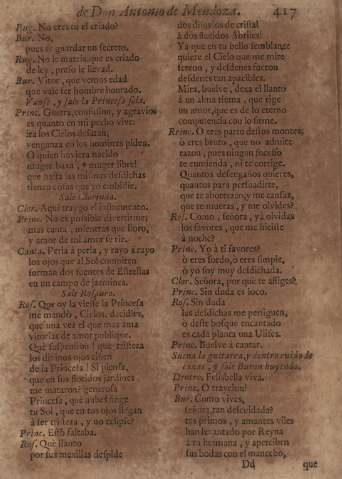 de Don Antonio de Mendoza. 417
Rug. No eres tu el criado?
Bur. No,
pues se guardar un secreto.
Rug. No le mateis, que es criado
de ley, preso le llevad.
Bur. Vitor, que vemos edad
que vale ser hombre honrado.
Vanse, y sale la Princesa sola.
Princ. Guerra, confusion, y agravios
es quanto en mi pecho vive:
ira los Cielos desatan,
venganza en los hombres piden.
O quien huviera nacido
muger baxa, y muger libre!
que hasta las mismas desdichas
tienen cosas que yo embidie.
Sale Clorinda.
Clor. Aqui traygo el instrumento.
Princ. No es possible divertirme;
mas canta, mientras que lloro,
y amor de mi amor se rie.
Canta. Perla à perla, y rayo à rayo
los ojos que al Sol compiten
forman dos fuentes de Estrellas
en un campo de jazmines.
Sale Rosauro.
Ros. Que oy la viesse la Princesa
me mandò, Cielos, decidles,
que una vez el que mas ama
vitorias de amor publique.
Què suspension! què tristeza
los divinos ojos ciñen
de la Princesa! Si piensa,
que en sus floridos jardines
me mataron? generosa
Princesa, què nube finge
tu Sol, que en tus ojos llegan
à ser tristeza, y no eclipse?
Princ. Esto faltaba.
Ros. Què llanto
por sus mexillas despide
dos diluvios de cristal
à dos floridos Abriles!
Ya que en tu bello semblante
quiere el Cielo que me mire
sereno, y desdenes fueron
desdenes tan apacibles.
Mira, buelve, dexa el llanto
à un alma tirana, que rige
un amor, que es de lo eterno
competencia con lo firme.
Princ. O eres parto dessos montes,
ò eres bruto, que no admite
razon, pues ningun sucesso
te enmienda, ni te corrige.
Quantos desengaños quieres,
quantos para persuadirte,
que te aborrezco, y me cansas,
que te mueras, y me olvides?
Ros. Como, señora, yà olvidas
los favores, que me hiciste
à noche?
Princ. Yo à ti favores?
ò eres sordo, ò eres simple,
ò yo soy muy desdichada.
Clor. Señora, por que te afliges?
Princ. Sin duda es loco.
Ros. Sin duda
las desdichas me persiguen,
ò deste bosque encantado
es cada planta una Ulises.
Princ. Buelve à cantar.
Suena la guitarra, y dentro ruido de
caxas, y sale Buron huyendo.
Dentro. Felisbella viva.
Princ. O traycion!
Bur. Como vives,
señora, tan descuidada?
tus primos, y amantes viles
han levantado por Reyna
à tu hermana, y aperciben
sus bodas con el mancebo,
Dd que